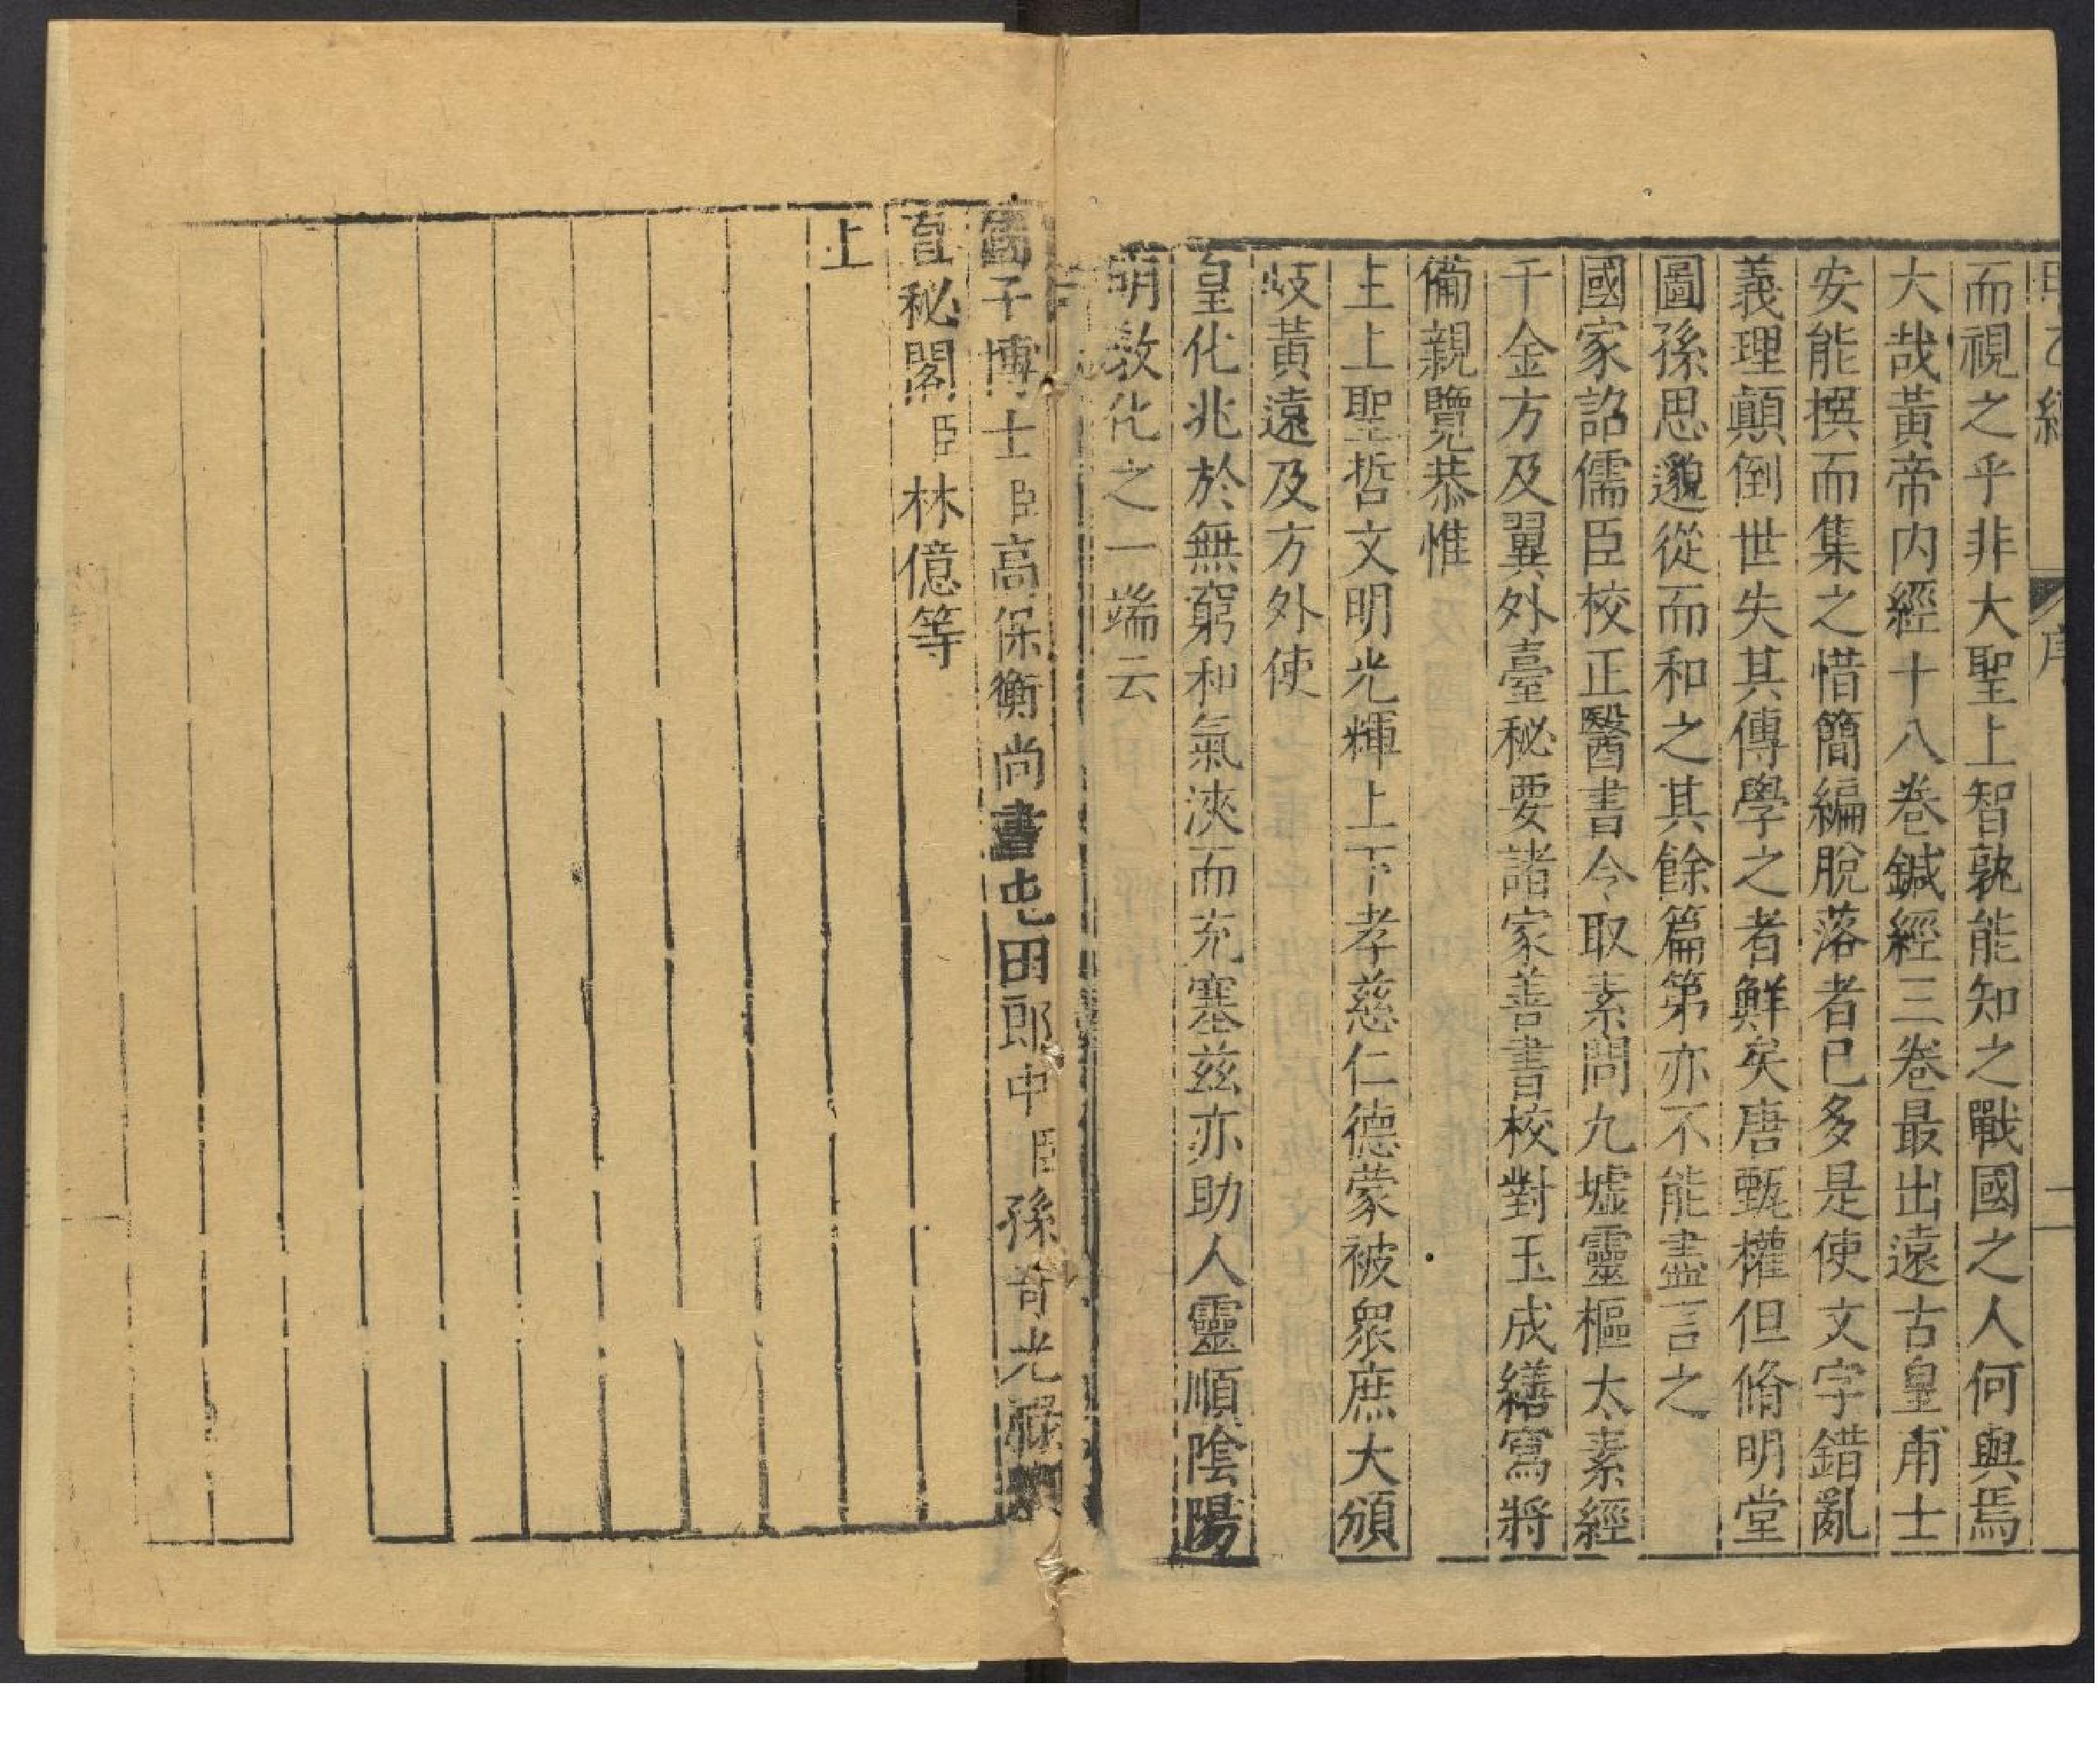 甲乙經 序 二
而視之乎非大聖上智孰能知之戰國之人何與焉
大哉黃帝内經十八卷鍼經三卷最出遠古皇甫士
安能撰而集之惜簡編脫落者已多是使文字錯亂
義理顛倒世失其傳學之者鮮矣唐甄權但脩明堂
圖孫思邈從而和之其餘篇第亦不能盡言之
國家詔儒臣校正醫書令取素問九墟靈樞太素經
千金方及翼外臺秘要諸家善書校對玉成繕寫將
備親覽恭惟
主上聖哲文明光輝上下孝慈仁德蒙被眾庶大頒
岐黃遠及方外使
皇化兆於無窮和氣浹而充塞兹亦助人靈順陰陽
明敎化之一端云
國子博士臣高保衡尚書屯田郎中臣孫奇光祿
直秘閣臣林億等
上